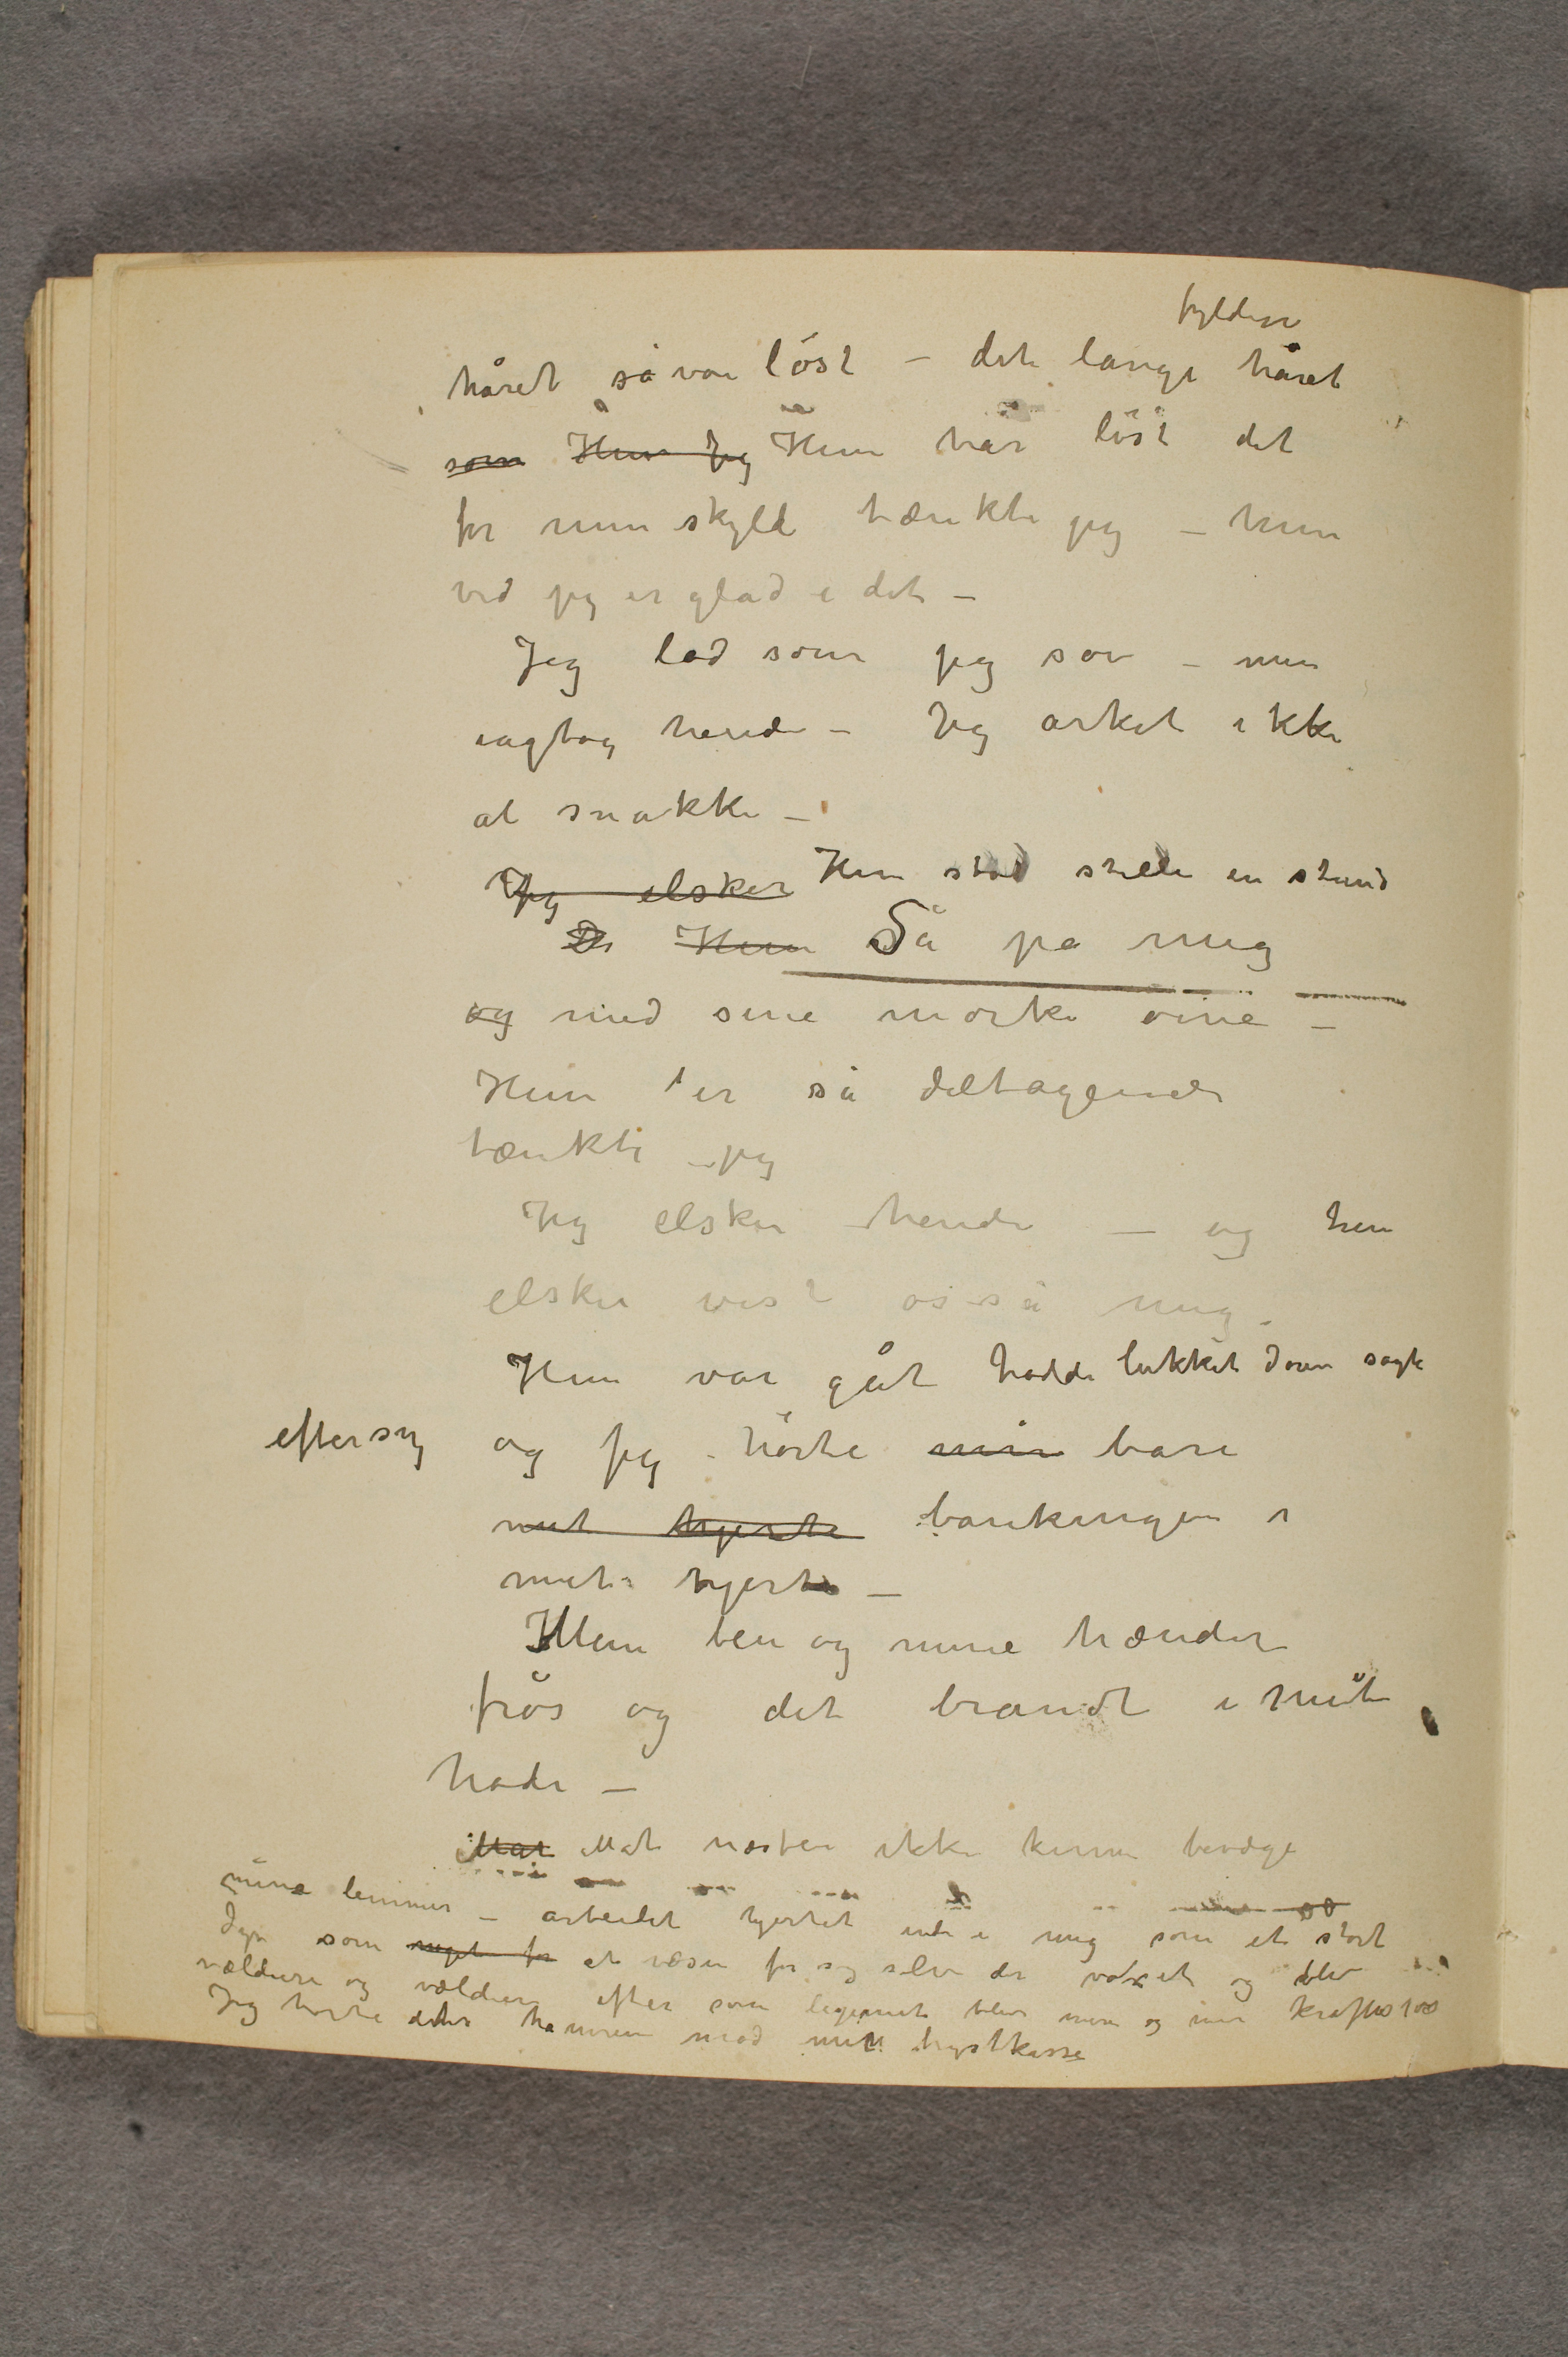 fyldige
håret så var löst – det lange håret
som Hun Jeg Hun har löst det
for min skyld tænkte jeg – hun
ved jeg er glad i det –
Jeg lod som jeg sov – men
iagtog hende – Jeg orket ikke
at snakke –
Jeg elsker Hun stod stille en stund
De Hun Så på mig
og med sine mørke öine –
Hun er så deltagende
tænkte jeg
Jeg elsker hende – og hun
elsker vist osså mig –
Hun var gåt hadde lukket doren sagte
efter sig og jeg hörte min bare
mit hjerte bankingen i
mit hjerte –
Mine ben og mine hænder
frös og det brandt i mit
hode –
Mat Mat næsten ikke kunne bevæge
mine lemmer – arbeidet hjertet inde i mig som et stort
dyr som noget for et væsen for sig selv der voxet og blev
vældiere og vældiere efter som legemet blev mere og mer kraftløs
Jeg hørte det hamren mod min brystkasse